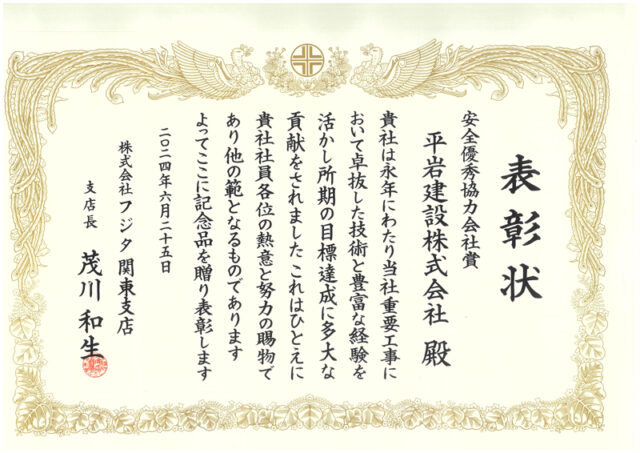 表彰状
安全優秀協力会社賞
平岩建設株式会社 殿
貴社は永年にわたり当社重要工事に
おいて卓抜した技術と豊富な経験を
活かし所期の目標達成に多大な
貢献をされました これはひとえに
貴社社員各位の熱意と努力の賜物で
あり他の範となるものであります
よってここに記念品を贈り表彰します
二〇二四年六月二十五日
株式会社フジタ関東支店
支店長 茂川和生